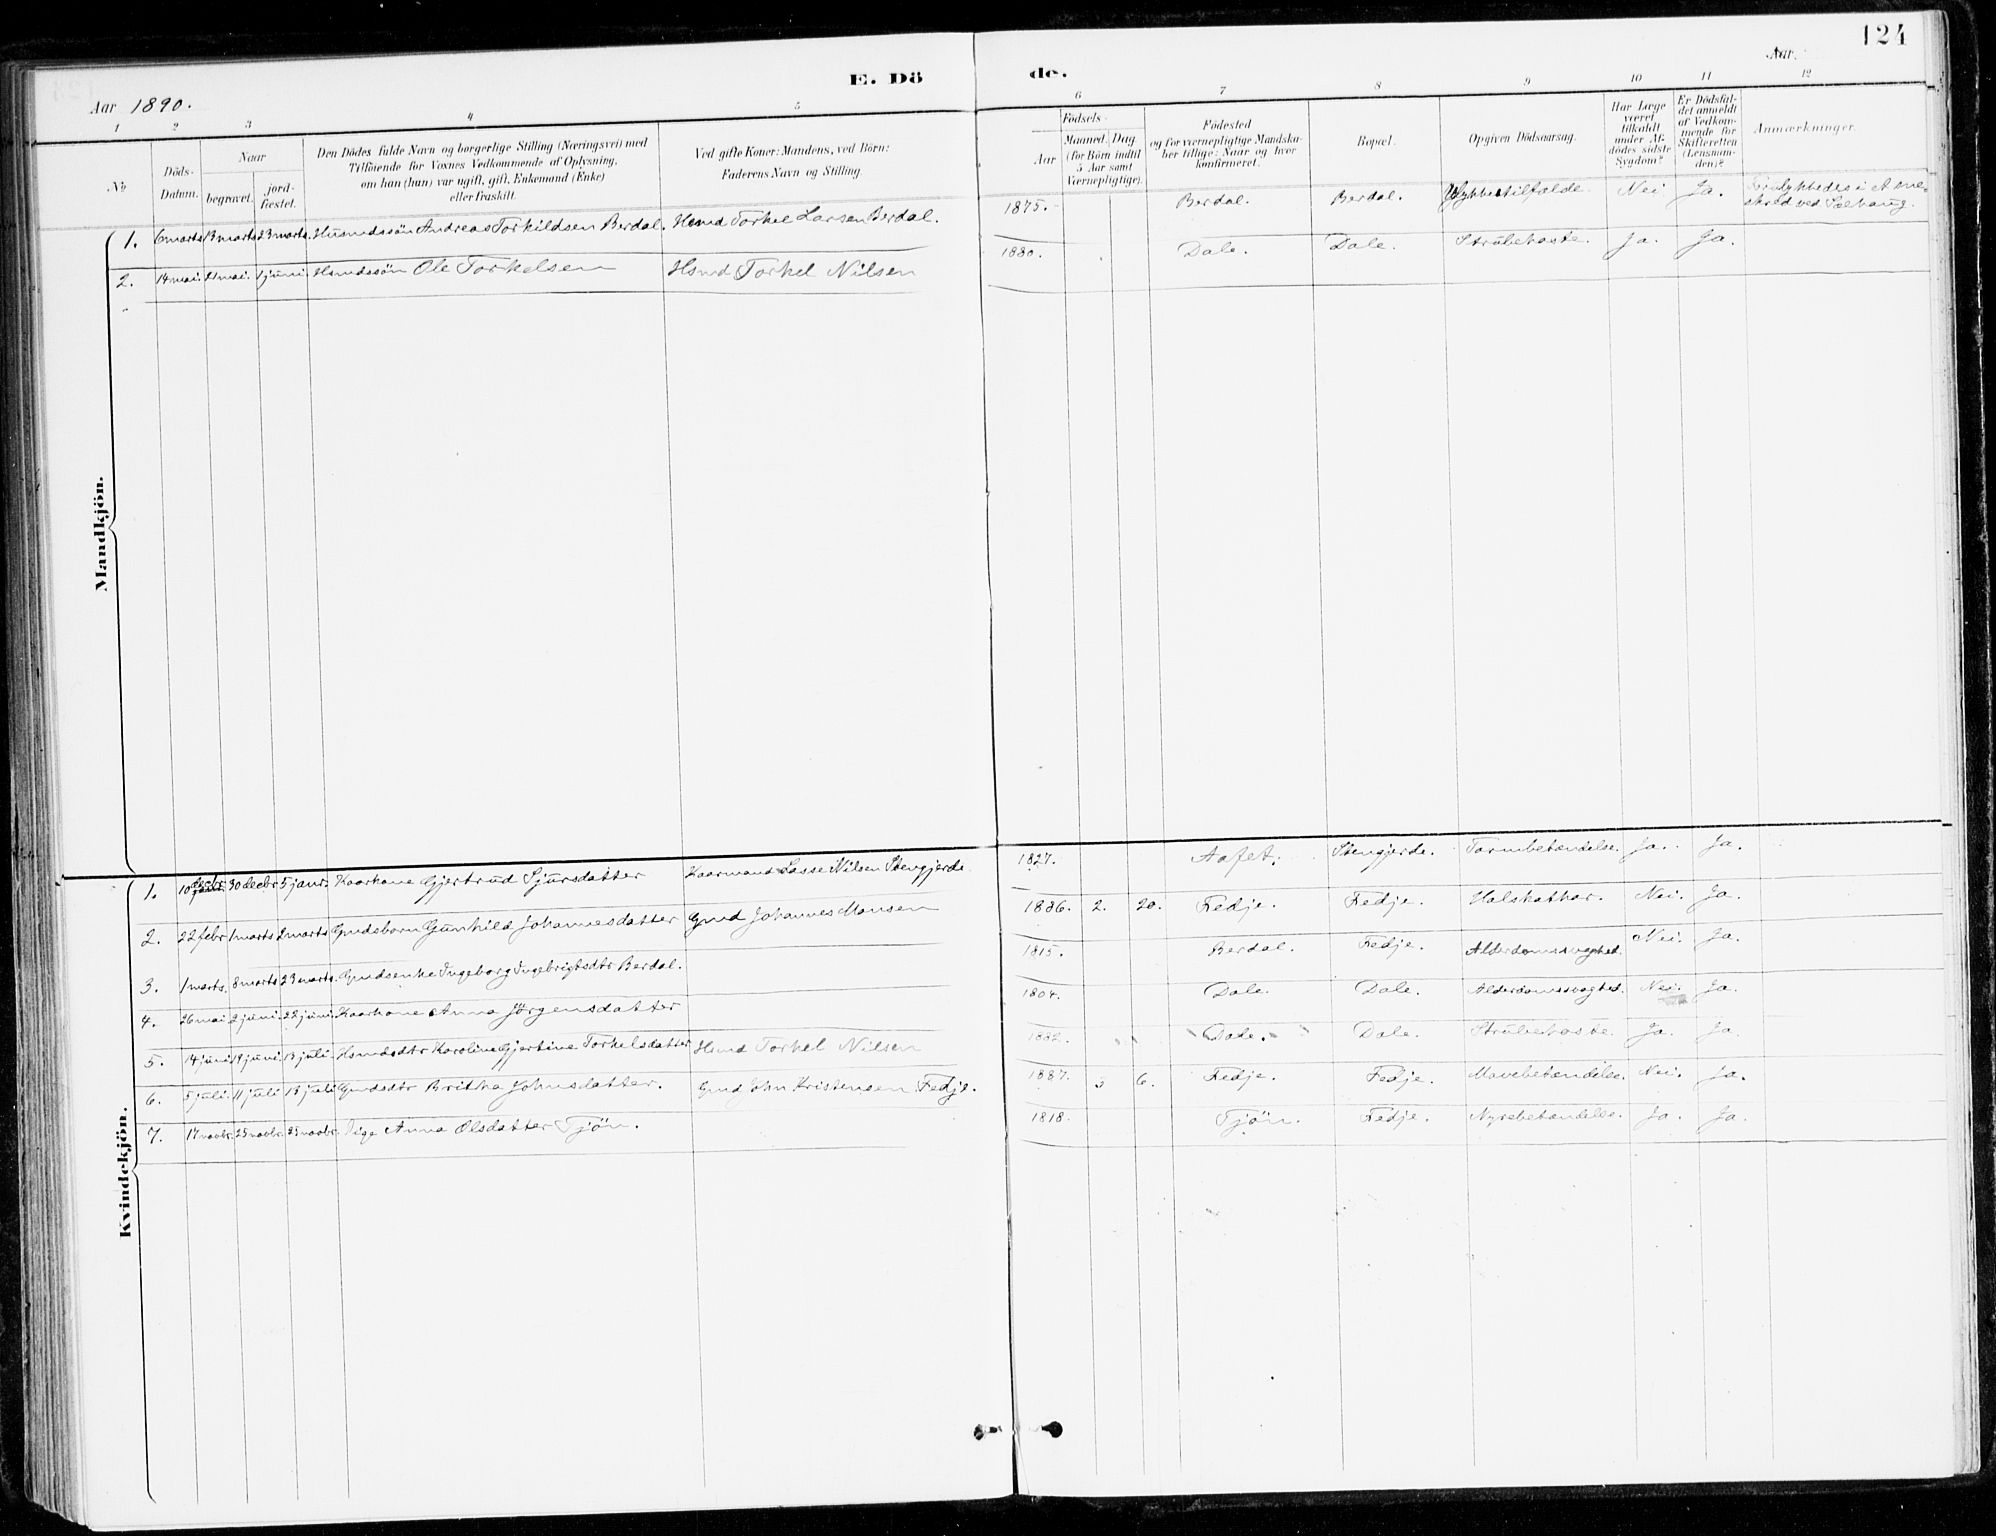 124
E. Dö de.
Aar 1890. Aar
1 2 3 4 5 6 7 8 9 10 11 12
No
Döds-Datum.
Naar
begravet.
jord-fæstet.
Den Dödes fulde Navn og borgerlige Stilling (Næringsvei) med
Tilföiende for Voxnes Vedkommende af Oplysning,
om han (hun) var ugift, gift, Enkemand (Enke)
eller fraskilt.
Ved gifte Koner: Mandens, ved Börn:
Faderens Navn og Stilling
Födsels-
Aar
Maaned. Dag.
(for Börn indtil
5 Aar samt
Værnepligtige).
Födested
og for værnepligtige Mandska-
ber tillige: Naar og hvor
konfirmeret.
Bopæl.
Opgiven Dödsaarsag.
Har Læge
været
tilkaldt
under Af-
dödes sidste
Sygdom?
Er Dödsfal-
det anmeldt
af Vedkom-
mende for
Skifteretten
(Lensman-
den)?
Anmærkninger.
Mandkjön.
1. 6 marts 13 marts 23 marts. Husmdssön Andreas Torkildsen Berdal. Hsmd Torkel Larsen Berdal. 1875. Berdal. Berdal. Ulykkestilfælde. Nei Ja. Forulykkedes i et sne-
skred ved Solhaug.
2. 14 mai. 21 mai. 1 juni Hsmdssön Ole Torkelsen Hsmd Torkel Nilsen 1880. Dale. Dale. Strubehoste. Ja. Ja.
Kvindekjön.
1. 10 decbr. 30 decbr 5 janr. Kaarkone Gjertrud Sjursdatter Kaarmand Lasse Nilsen Stengjerde 1827. Aafet. Stengjerde. Tarmbetændelse. Ja. Ja.
2. 22 febr 1 marts 2 marts Gmdsbarn Gunhild Johannesdatter Gmd Johannes Monsen 1886. 2. 20. Fedje. Fedje. Halskathar. Nei. Ja.
3. 1 marts. 8 marts 23 marts. Gmdsenke Ingeborg Ingebrigtsdtr Berdal. 1815. Berdal. Fedje. Alderdomssvaghed. Nei. Ja.
4. 26 mai 2 juni. 22 juni. Kaarkone Anna Jörgensdatter 1804. Dale. Dale. Alderdomssvaghed. Nei. Ja.
5. 14 juni 19 juni 13 juli. Hsmdsdtr Karoline Gjertine Torkelsdatter Hsmd Torkel Nilsen 1882. Dale. Dale. Strubehoste. Ja. Ja.
6. 5 juli. 11 juli 13 juli Gmdsdtr Britha Johnsdatter. Gmd John Kristensen Fedje. 1887. 3 6. Fedje. Fedje. Mavebetændelse. Nei. Ja.
7. 17 novbr. 25 novbr. 25 novbr. Pige Anna Olsdatter Tjön. 1818. Tjön. Fedje. Nyrebetændelse. Ja. Ja.